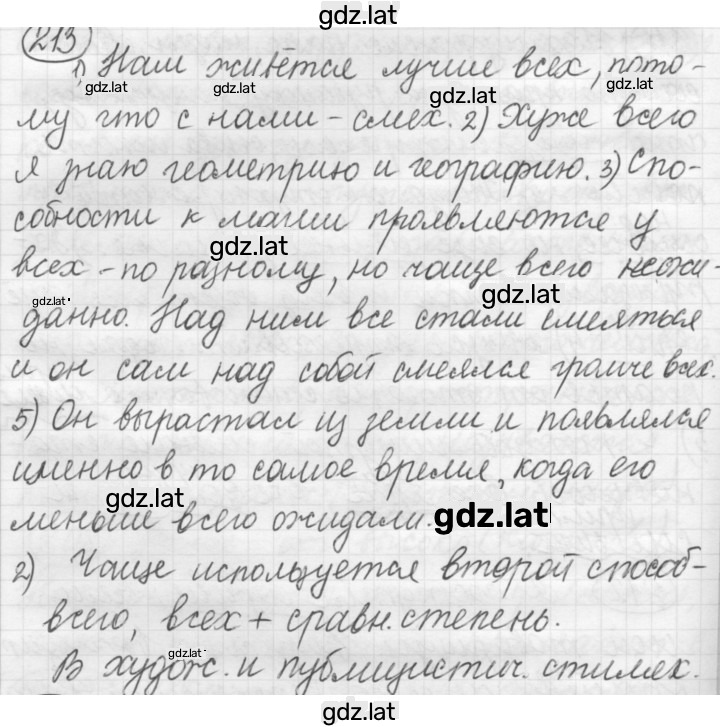 gdz.lat
213
1) Нам живётся лучше всех, пото-
gdz.lat gdz.lat gdz.lat gdz.lat
му что с нами - смех. 2) Хуже всего
я знаю геометрию и географию. 3) Спо-
собности к магии проявляются у
gdz.lat
всех - по разному, но чаще всего неожи-
gdz.lat gdz.lat
данно. Над ним все стали смеяться
и он сам над собой смеялся громче всех.
5) Он вырастал из земли и появлялся
именно в то самое время, когда его
gdz.lat
меньше всего ожидали. gdz.lat
2) Чаще используется второй способ-
всего, всех + сравн. степень.
gdz.lat
В худож. и публицистич. стилях.
gdz.lat